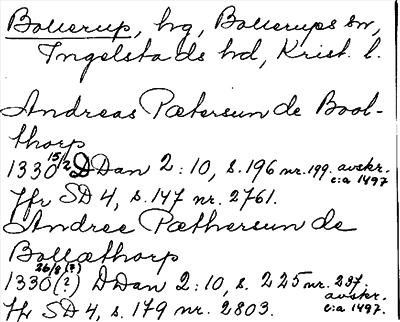 Bollerup, hg, Bollerups sn,
Ingelstads hd, Krist. l.
Andreas Pætersun de Bool-
thorp
1330 15/2 DDan 2:10, s. 196 nr. 199. avskr. c:a 1497
Jfr SD 4, s. 147 nr. 2761.
Andree Pæthersun de
Bollæthorp
1330 26/8 (?) (?) DDan 2:10, s. 225 nr. 237. avskr. c:a 1497.
Jfr SD 4, s. 179 nr. 2803.